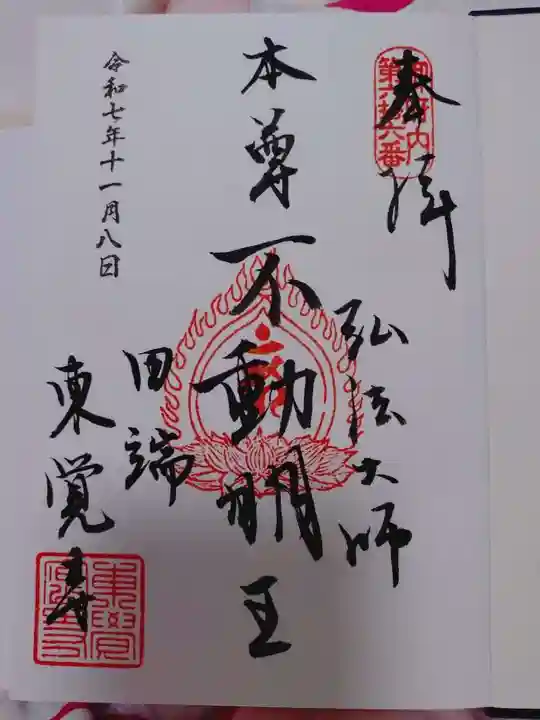 奉拝
御府内
第六拾六番
弘法大師
本尊不動明王
田端
東覚寺
令和七年十一月八日